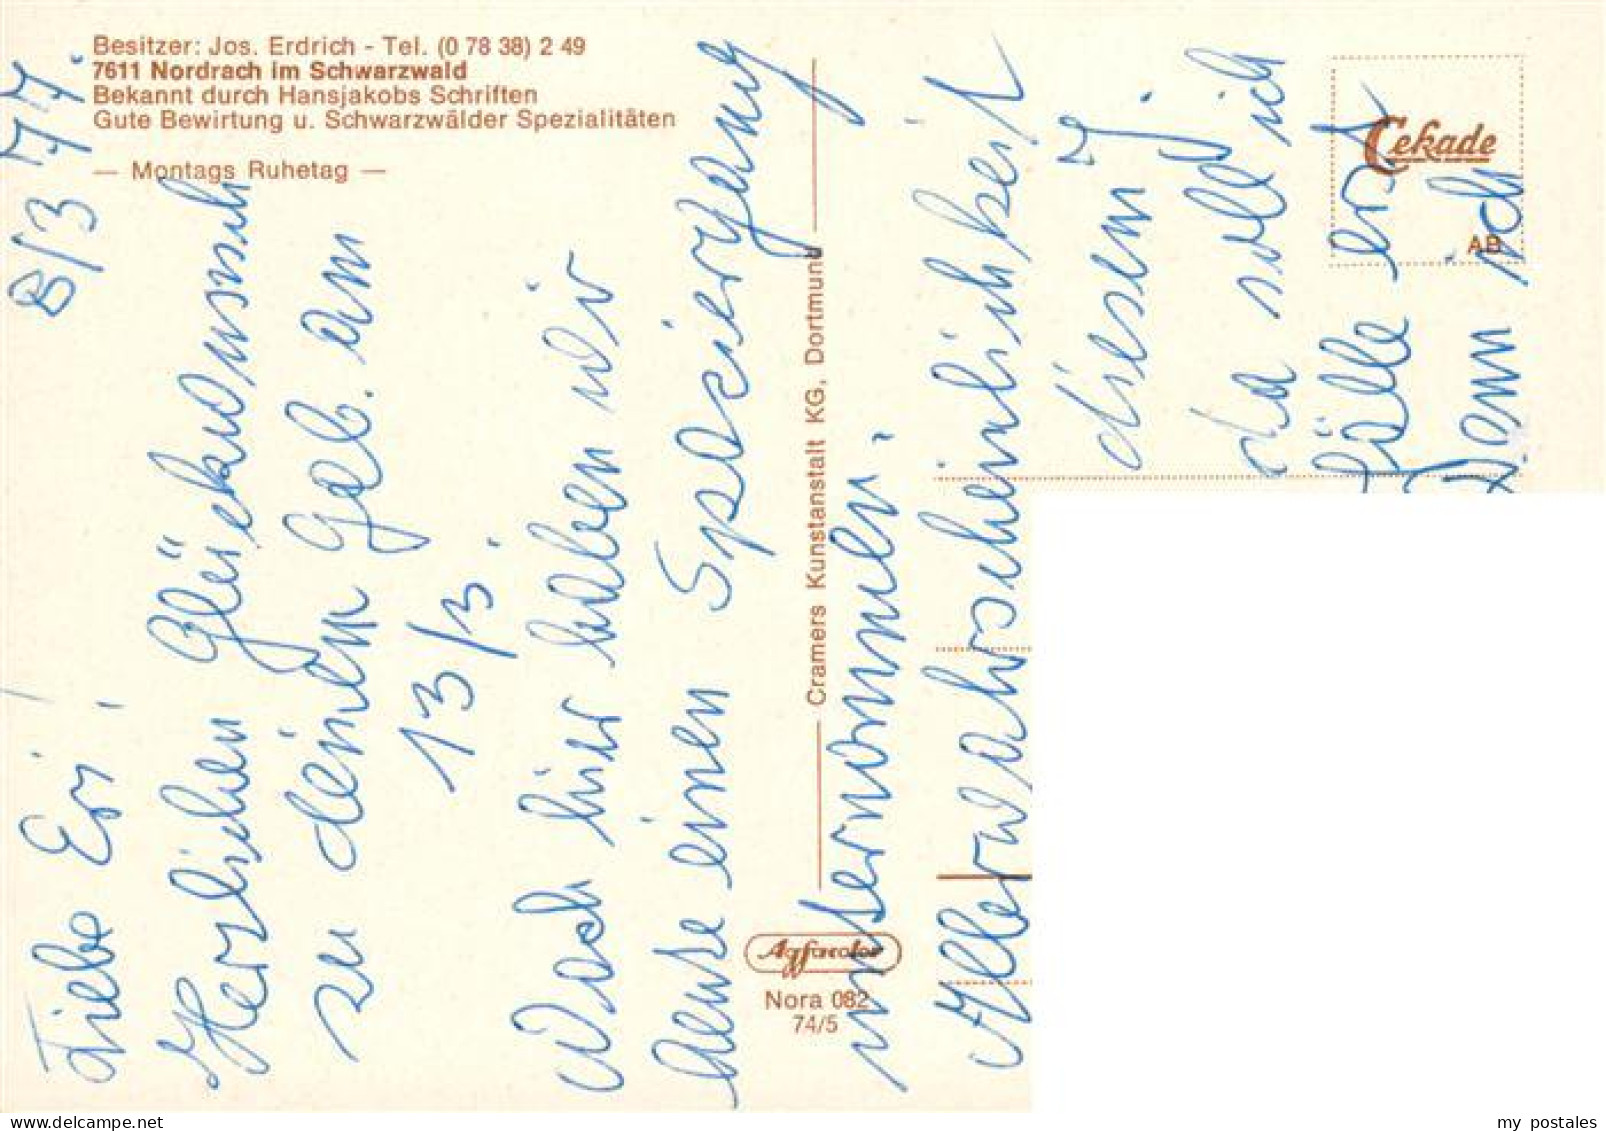 Besitzer: Jos. Erdrich - Tel. (0 78 38) 2 49
7611 Nordrach im Schwarzwald
Bekannt durch Hansjakobs Schriften
Gute Bewirtung u. Schwarzwälder Spezialitäten
— Montags Ruhetag —
8/3 77.
Liebe Eri!
Herzlichen Glückwunsch
zu deinem Geb. am
13/3.
Nach hier haben wir
heute einen Spaciergang
unternommen.
Allerwahrscheinlichkeit
diesem J.
da soll ich
fälle erst
Denn ich
Cramers Kunstanstalt KG, Dortmund
Agfacolor
Nora 082
74/5
Cekade
AB
my postales